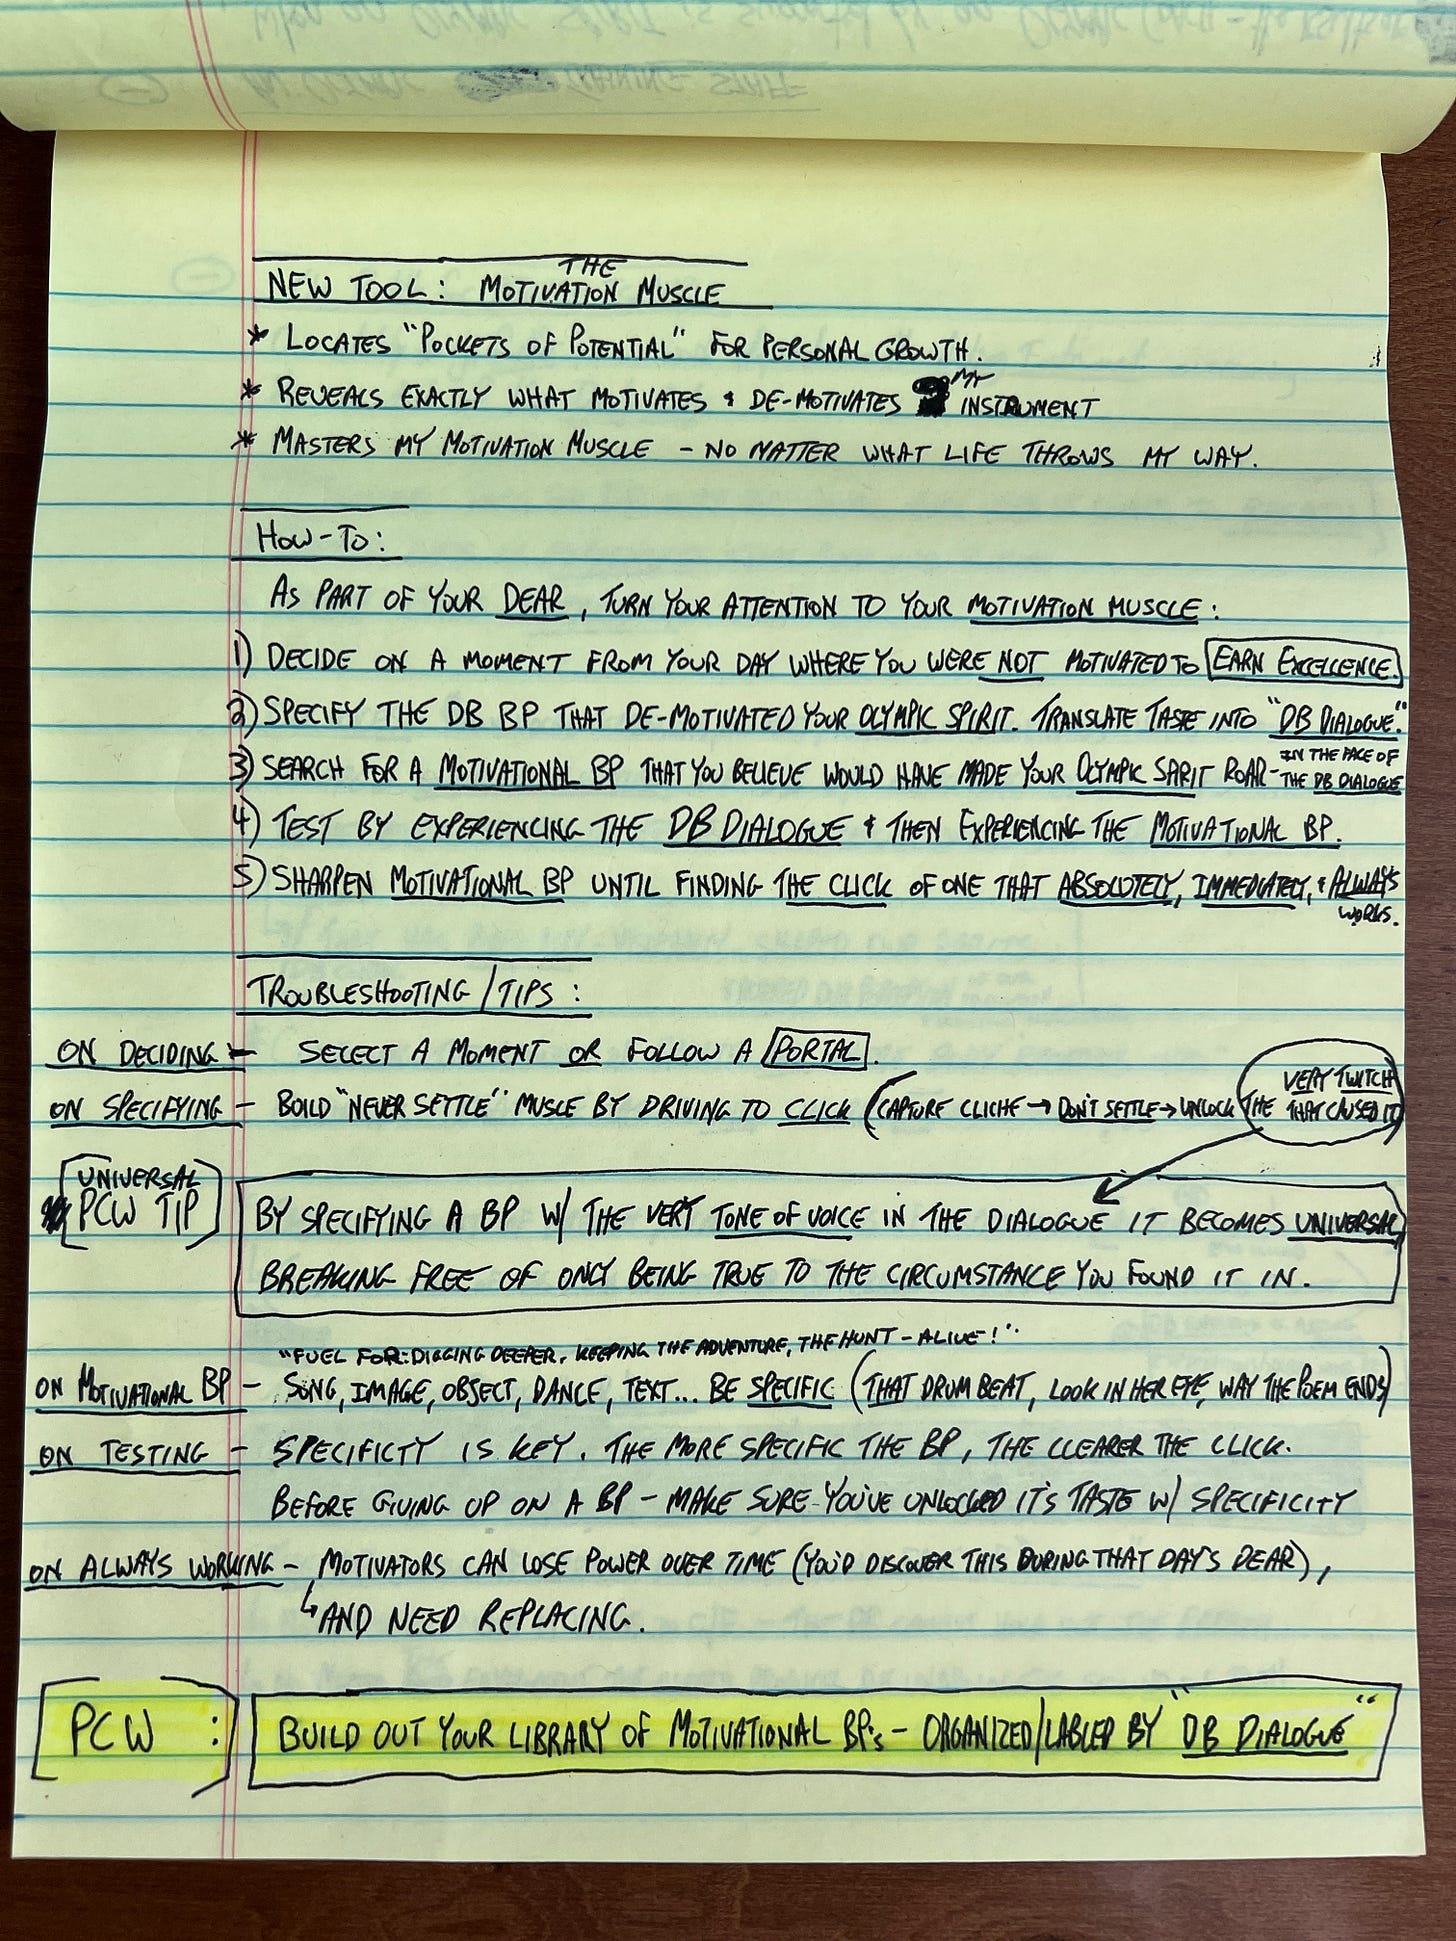 NEW TOOL: THE MOTIVATION MUSCLE
* LOCATES "POCKETS OF POTENTIAL" FOR PERSONAL GROWTH.
* REVEALS EXACTLY WHAT MOTIVATES & DE-MOTIVATES MY INSTRUMENT
* MASTERS MY MOTIVATION MUSCLE - NO MATTER WHAT LIFE THROWS MY WAY.
HOW-TO:
AS PART OF YOUR DEAR, TURN YOUR ATTENTION TO YOUR MOTIVATION MUSCLE:
1) DECIDE ON A MOMENT FROM YOUR DAY WHERE YOU WERE NOT MOTIVATED TO EARN EXCELLENCE.
2) SPECIFY THE DB BP THAT DE-MOTIVATED YOUR OLYMPIC SPIRIT. TRANSLATE TASTE INTO "DB DIALOGUE."
3) SEARCH FOR A MOTIVATIONAL BP THAT YOU BELIEVE WOULD HAVE MADE YOUR OLYMPIC SPIRIT ROAR - IN THE FACE OF THE DB DIALOGUE
4) TEST BY EXPERIENCING THE DB DIALOGUE & THEN EXPERIENCING THE MOTIVATIONAL BP.
5) SHARPEN MOTIVATIONAL BP UNTIL FINDING THE CLICK OF ONE THAT ABSOLUTELY, IMMEDIATELY, & ALWAYS WORKS.
TROUBLESHOOTING/TIPS:
ON DECIDING - SELECT A MOMENT OR FOLLOW A PORTAL.
ON SPECIFYING - BUILD "NEVER SETTLE" MUSCLE BY DRIVING TO CLICK (CAPTURE CLICHE → DON'T SETTLE → UNLOCK THE VERY TWITCH THAT CAUSED IT)
[UNIVERSAL PCW TIP]
BY SPECIFYING A BP W/ THE VERY TONE OF VOICE IN THE DIALOGUE IT BECOMES UNIVERSAL
BREAKING FREE OF ONLY BEING TRUE TO THE CIRCUMSTANCE YOU FOUND IT IN.
"FUEL FOR: DIGGING DEEPER, KEEPING THE ADVENTURE, THE HUNT - ALIVE!"
ON MOTIVATIONAL BP - SONG, IMAGE, OBJECT, DANCE, TEXT... BE SPECIFIC (THAT DRUM BEAT, LOOK IN HER EYE, WAY THE POEM ENDS)
ON TESTING - SPECIFICTY IS KEY. THE MORE SPECIFIC THE BP, THE CLEARER THE CLICK.
BEFORE GIVING UP ON A BP - MAKE SURE YOU'VE UNLOCKED IT'S TASTE W/ SPECIFICITY
ON ALWAYS WORKING - MOTIVATORS CAN LOSE POWER OVER TIME (YOU'D DISCOVER THIS DURING THAT DAY'S DEAR),
↳ AND NEED REPLACING.
[PCW :] BUILD OUT YOUR LIBRARY OF MOTIVATIONAL BP's - ORGANIZED/LABLED BY "DB DIALOGUE"